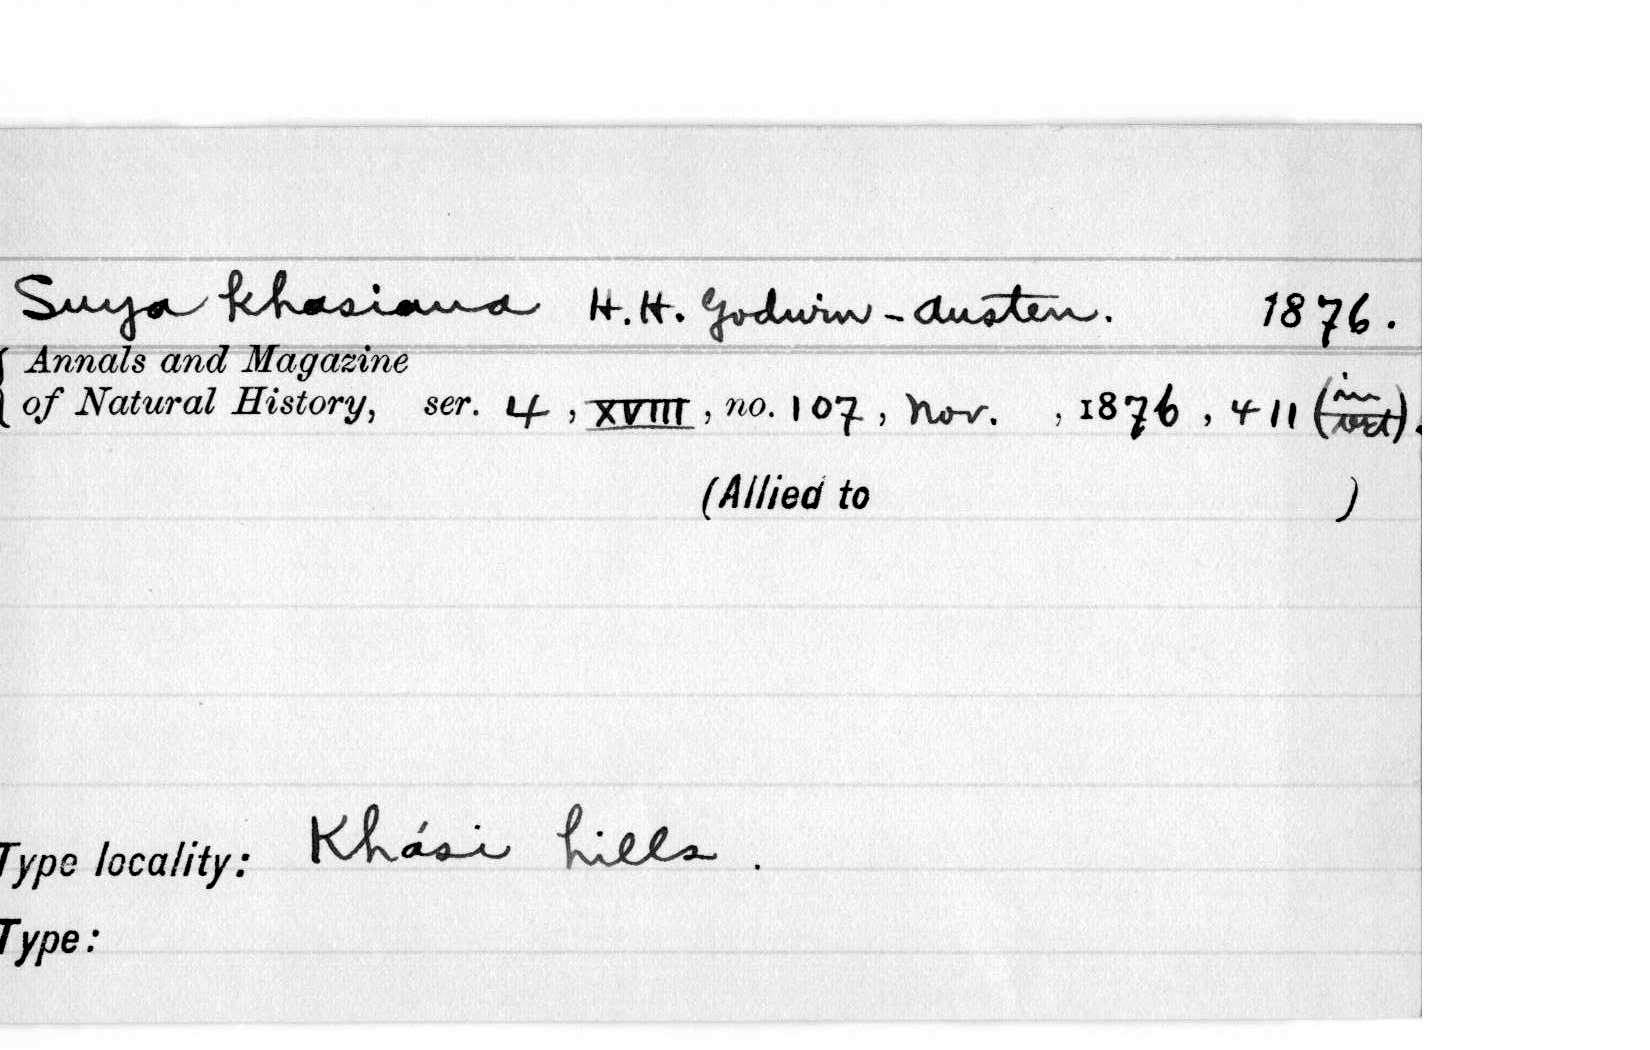 Suya khasiana H.H. Godwin-Austen. 1876.
{ Annals and Magazine
of Natural History, ser. 4, XVIII, no. 107, Nov. , 1876, 411 (in text).
(Allied to )
Type locality: Khási hills.
Type: